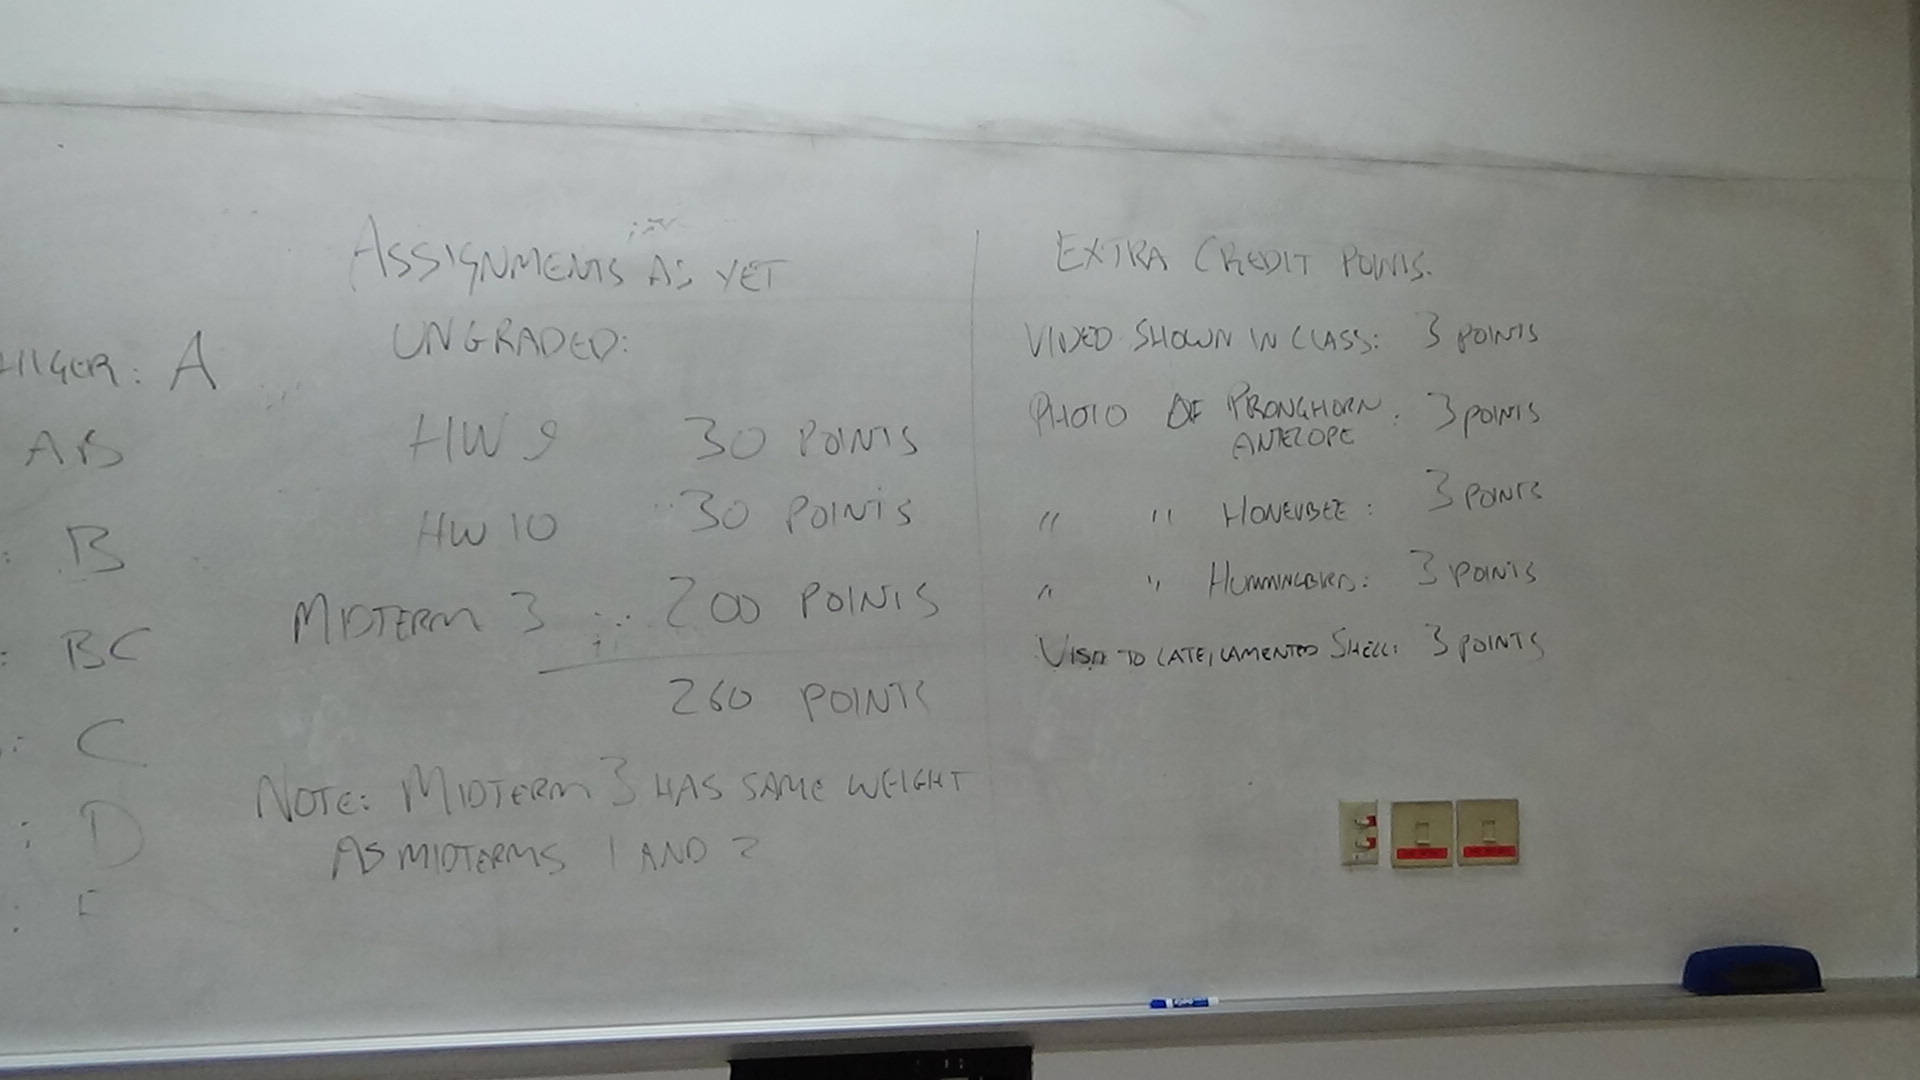 HIGER: A
AB
: B
: BC
: C
: D
ASSIGNMENTS AS YET
UNGRADED:
HW 9 30 POINTS
HW 10 30 POINTS
MIDTERM 3 200 POINTS
260 POINTS
NOTE: MIDTERM 3 HAS SAME WEIGHT
AS MIDTERMS 1 AND 2
EXTRA CREDIT POINTS.
VIDEO SHOWN IN CLASS: 3 POINTS
PHOTO OF PRONGHORN : 3 POINTS
ANTELOPE
" " HONEYBEE : 3 POINTS
" " HUMMINGBIRD: 3 POINTS
VISIT TO LATE, LAMENTED SHELL: 3 POINTS